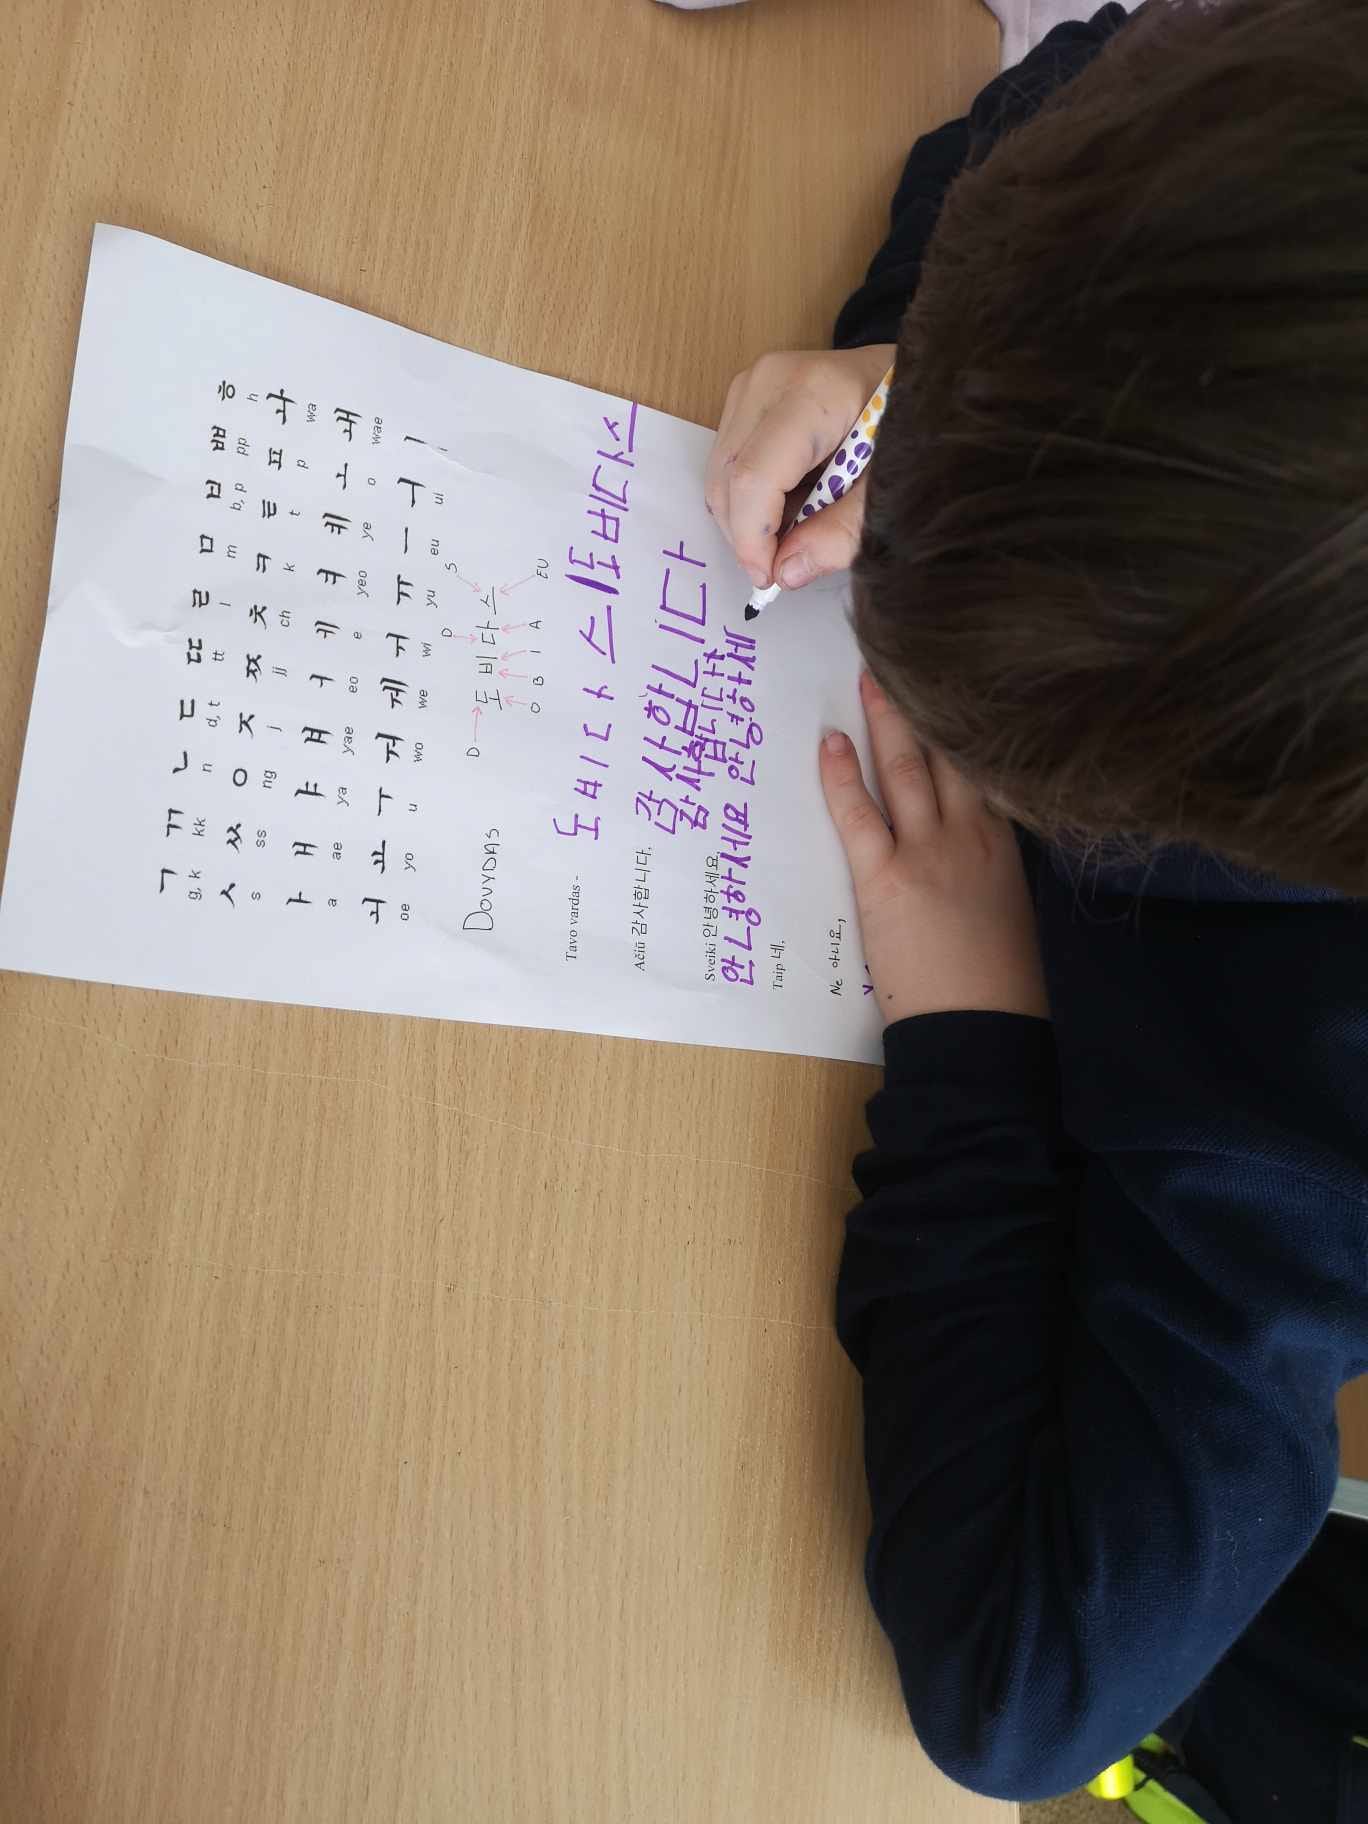 ㄱ ㄲ ㄴ ㄷ ㄸ ㄹ ㅁ ㅂ ㅃ ㅎ
g, k kk n d, t tt l m b, p pp h
ㅅ ㅆ ㅇ ㅈ ㅉ ㅊ ㅋ ㅌ ㅍ ㅘ
s ss ng j jj ch k t p wa
ㅏ ㅐ ㅑ ㅒ ㅓ ㅔ ㅕ ㅖ ㅗ ㅙ
a ae ya yae eo e yeo ye o wae
ㅚ ㅛ ㅜ ㅝ ㅞ ㅟ ㅠ ㅡ ㅢ ㅣ
oe yo u wo we wi yu eu ui i
D D S
DOVYDAS 도비다스
O B I A EU
Tavo vardas - 도비다스/도비다스
Ačiū 감사합니다.
감사합니다
Sveiki 안녕하세요,
안녕하세요 안녕하세
Taip 네,
Ne 아니요,